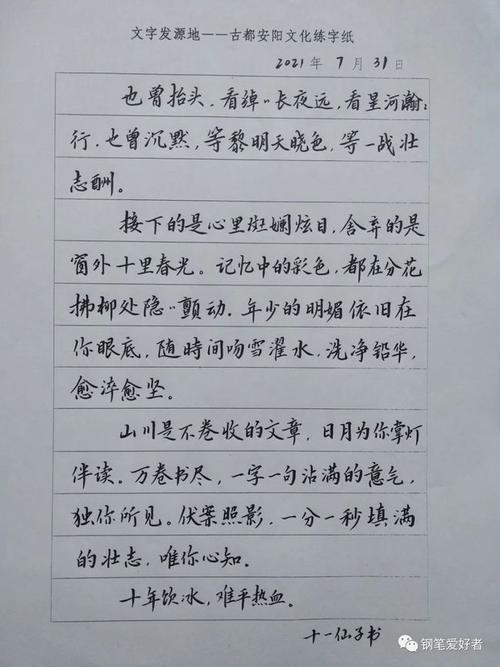 文字发源地——古都安阳文化练字纸
2021年 7月 31日
也曾抬头、看绰〃长夜远，看星河瀚；
行、也曾沉默，等黎明天晓色，等一战壮
志酬。
接下的是心里斑斓炫目，舍弃的是
窗外十里春光。记忆中的彩色，都在分花
拂柳处隐〃颤动、年少的明媚依旧在
你眼底，随时间吻雪濯水、洗净铅华，
愈淬愈坚。
山川是不卷收的文章，日月为你掌灯
伴读。万卷书尽，一字一句沾满的意气，
独你所见。伏案照影，一分一秒填满
的壮志，唯你心知。
十年饮冰，难平热血。
十一仙子书
钢笔爱好者